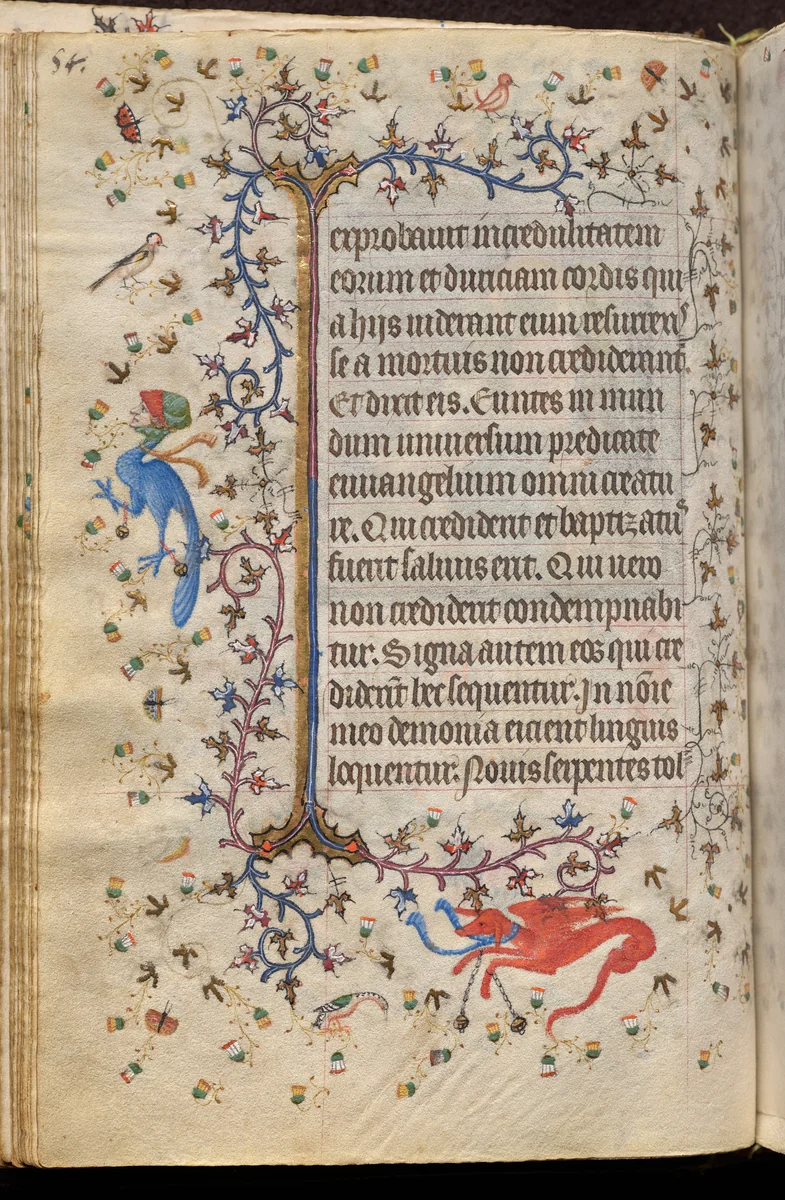 54.
exprobauit incredulitatem
eorum et duriciam cordis qui
a hijs uiderant eum resurrex
se a mortuis non crediderunt.
Et dixit eis. Euntes in mun
dum uniuersum predicate
euuangelium omni creatu
re. Qui crediderit et baptizatꝰ
fuerit saluus erit. Qui uero
non crediderit condempnabi
tur. Signa autem eos qui cre
diderīt hec sequentur. In nōie
meo demonia eicient linguis
loquentur. Nouis serpentes tol